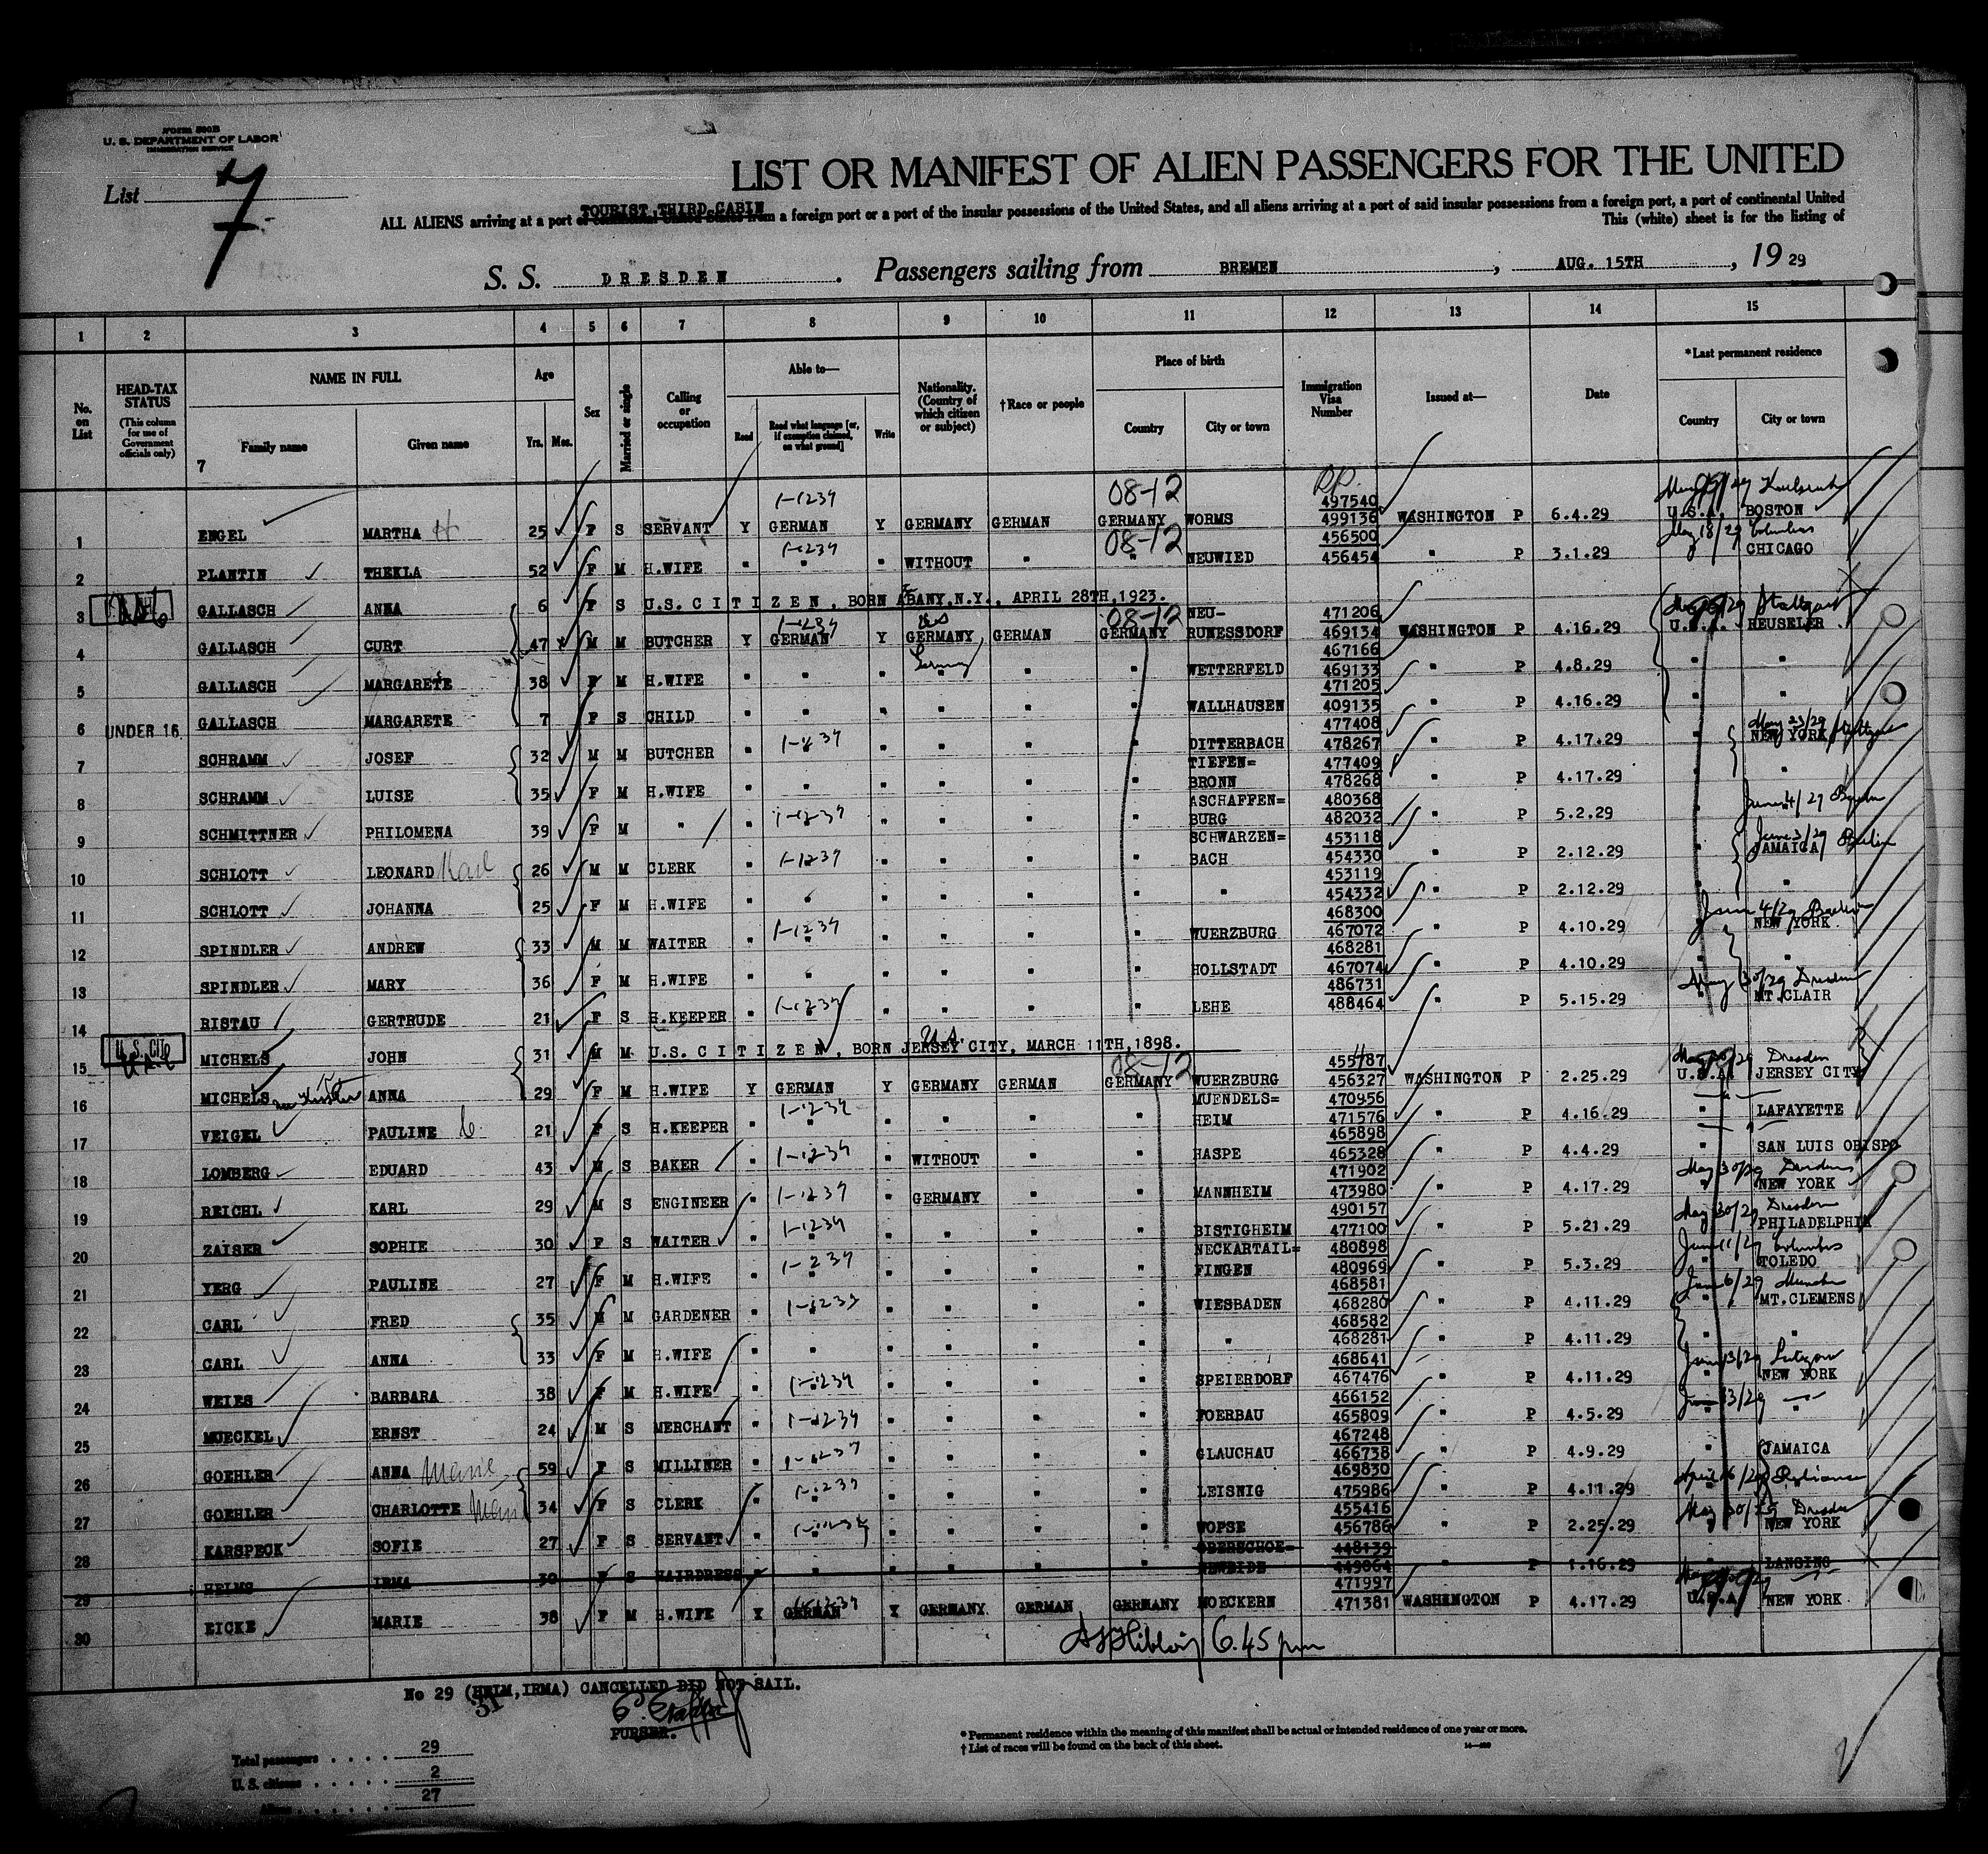 Form 500B
U. S. DEPARTMENT OF LABOR
IMMIGRATION SERVICE
List 7
LIST OR MANIFEST OF ALIEN PASSENGERS FOR THE UNITED
TOURIST THIRD CABIN
ALL ALIENS arriving at a port of continental United States from a foreign port or a port of the insular possessions of the United States, and all aliens arriving at a port of said insular possessions from a foreign port, a port of continental United
This (white) sheet is for the listing of
S. S. DRESDEN. Passengers sailing from BREMEN, AUG. 15TH, 19 29
1 2 3 4 5 6 7 8 9 10 11 12 13 14 15
No. on List
HEAD-TAX STATUS (This column for use of Government officials only)
NAME IN FULL Family name Given name
Age Yrs. Mos.
Sex
Married or single
Calling or occupation
Able to— Read Read what language [or, if exemption claimed, on what ground] Write
Nationality. (Country of which citizen or subject)
†Race or people
Place of birth Country City or town
Immigration Visa Number
Issued at—
Date
*Last permanent residence Country City or town
7
1 ENGEL MARTHA H 25 F S SERVANT Y GERMAN Y GERMANY GERMAN GERMANY WORMS 497540 499136 WASHINGTON P 6.4.29 U.S.A. BOSTON
2 PLANTIN THEKLA 52 F M H.WIFE " " " WITHOUT " " NEUWIED 456500 456454 " P 3.1.29 CHICAGO
3 GALLASCH ANNA 6 F S U.S. CITIZEN, BORN ABANY,N.Y., APRIL 28TH,1923.
4 GALLASCH CURT 47 M M BUTCHER Y GERMAN Y GERMANY, GERMAN GERMANY NEU-RUNESSDORF 471206 469134 WASHINGTON P 4.16.29 U.S.A. HEUSELER
5 GALLASCH MARGARETE 38 F M H.WIFE " " " " " " WETTERFELD 467166 469133 " P 4.8.29 " "
6 UNDER 16 GALLASCH MARGARETE 7 F S CHILD " " " " " " WALLHAUSEN 471205 409135 " P 4.16.29 " "
7 SCHRAMM JOSEF 32 M M BUTCHER " " " " " DITTERBACH 477408 478267 " P 4.17.29 " NEW YORK
8 SCHRAMM LUISE 35 F M H.WIFE " " " " " " TIEFEN=BRONN 477409 478268 " P 4.17.29 " "
9 SCHMITTNER PHILOMENA 39 F M " " " " " " ASCHAFFEN=BURG 480368 482032 " P 5.2.29
10 SCHLOTT LEONARD Karl 26 M M CLERK " " " " " SCHWARZEN=BACH 453118 454330 " P 2.12.29 JAMAICA
11 SCHLOTT JOHANNA 25 F M H.WIFE " " " " " " 453119 454332 " P 2.12.29 " "
12 SPINDLER ANDREW 33 M M WAITER " " " " " " WUERZBURG 468300 467072 " P 4.10.29 NEW YORK
13 SPINDLER MARY 36 F M H.WIFE " " " " " " HOLLSTADT 468281 467074 " P 4.10.29 " "
14 RISTAU GERTRUDE 21 F S H.KEEPER " " " " " " LEHE 486731 488464 " P 5.15.29 " MT.CLAIR
15 U.S. CIT. MICHELS JOHN 31 M M U.S. CITIZEN, BORN JERSEY CITY, MARCH 11TH,1898.
16 MICHELS ANNA 29 F M H.WIFE Y GERMAN Y GERMANY GERMAN GERMANY WUERZBURG 455787 456327 WASHINGTON P 2.25.29 U.S.A. JERSEY CITY
17 VEIGEL PAULINE C. 21 F S H.KEEPER " " " " " " MUENDELS=HEIM 470956 471576 " P 4.16.29 " LAFAYETTE
18 LOMBERG EDUARD 43 M S BAKER " " " WITHOUT " " HASPE 465898 465328 " P 4.4.29 " SAN LUIS OBISPO
19 REICHL KARL 29 M S ENGINEER " " " GERMANY " " MANNHEIM 471902 473980 " P 4.17.29 " NEW YORK
20 ZAISER SOPHIE 30 F S WAITER " " " " " " BISTIGHEIM 490157 477100 " P 5.21.29 " PHILADELPHIA
21 YERG PAULINE 27 F M H.WIFE " " " " " " NECKARTAIL=FINGEN 480898 480969 " P 5.3.29 " TOLEDO
22 CARL FRED 35 M M GARDENER " " " " " " WIESBADEN 468581 468280 " P 4.11.29 " MT.CLEMENS
23 CARL ANNA 33 F M H.WIFE " " " " " " " 468582 468281 " P 4.11.29 " "
24 WEIES BARBARA 38 F M H.WIFE " " " " " " SPEIERDORF 468641 467476 " P 4.11.29 " NEW YORK
25 MUECKEL ERNST 24 M S MERCHANT " " " " " " FOERBAU 466152 465809 " P 4.5.29 " "
26 GOEHLER ANNA Marie 59 F S MILLINER " " " " " " GLAUCHAU 467248 466738 " P 4.9.29 " JAMAICA
27 GOEHLER CHARLOTTE 34 F S CLERK " " " " " " LEISNIG 469830 475986 " P 4.11.29
28 KARSPECK SOFIE 27 F S SERVANT " " " " " " WOPSE 455416 456786 " P 2.25.29 " NEW YORK
29 HELMS IRMA 30 F S HAIRDRESS " " " " " " 448139 449064 " P 1.16.29 " LANSING
30 EICKE MARIE 38 F M H.WIFE Y GERMAN Y GERMANY GERMAN GERMANY MOECKERN 471997 471381 WASHINGTON P 4.17.29 U.S.A. NEW YORK
6.45 pm
No 29 (HEIM,IRMA) CANCELLED DID NOT SAIL.
31
PURSER.
* Permanent residence within the meaning of this manifest shall be actual or intended residence of one year or more.
† List of races will be found on the back of this sheet.
Total passengers . . . . 29
U. S. citizens . . . . . 2
Aliens . . . . . . 27